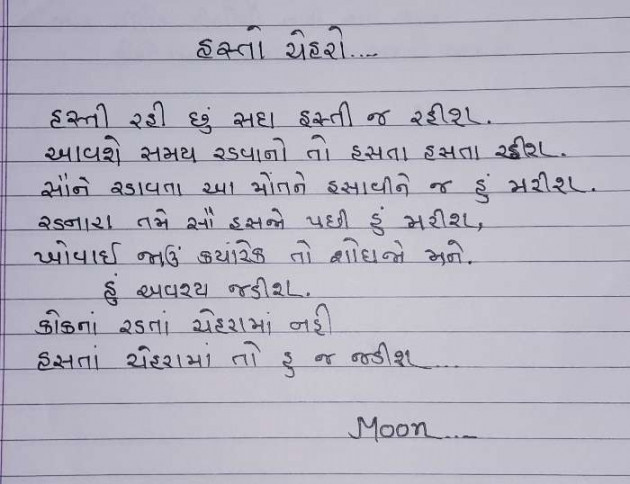 હસ્તો ચેહરો....
હસ્તી રહી છું સદા હસ્તી જ રહીશ.
આવશે સમય રડવાનો તો હસતા હસતા રડીશ.
સૌને રડાવતા આ મોંતને હસાવીને જ હું મરીશ.
રડનારા તમે સૌ હસજો પછી હું મરીશ,
ખોવાઈ જાઉં કયાંરેક તો શોધજો મને.
હું અવશ્ય જડીશ.
કોકનાં રડતાં ચેહરામાં નહી
હસતાં ચેહરામાં તો હુ જ જડીશ....
Moon....